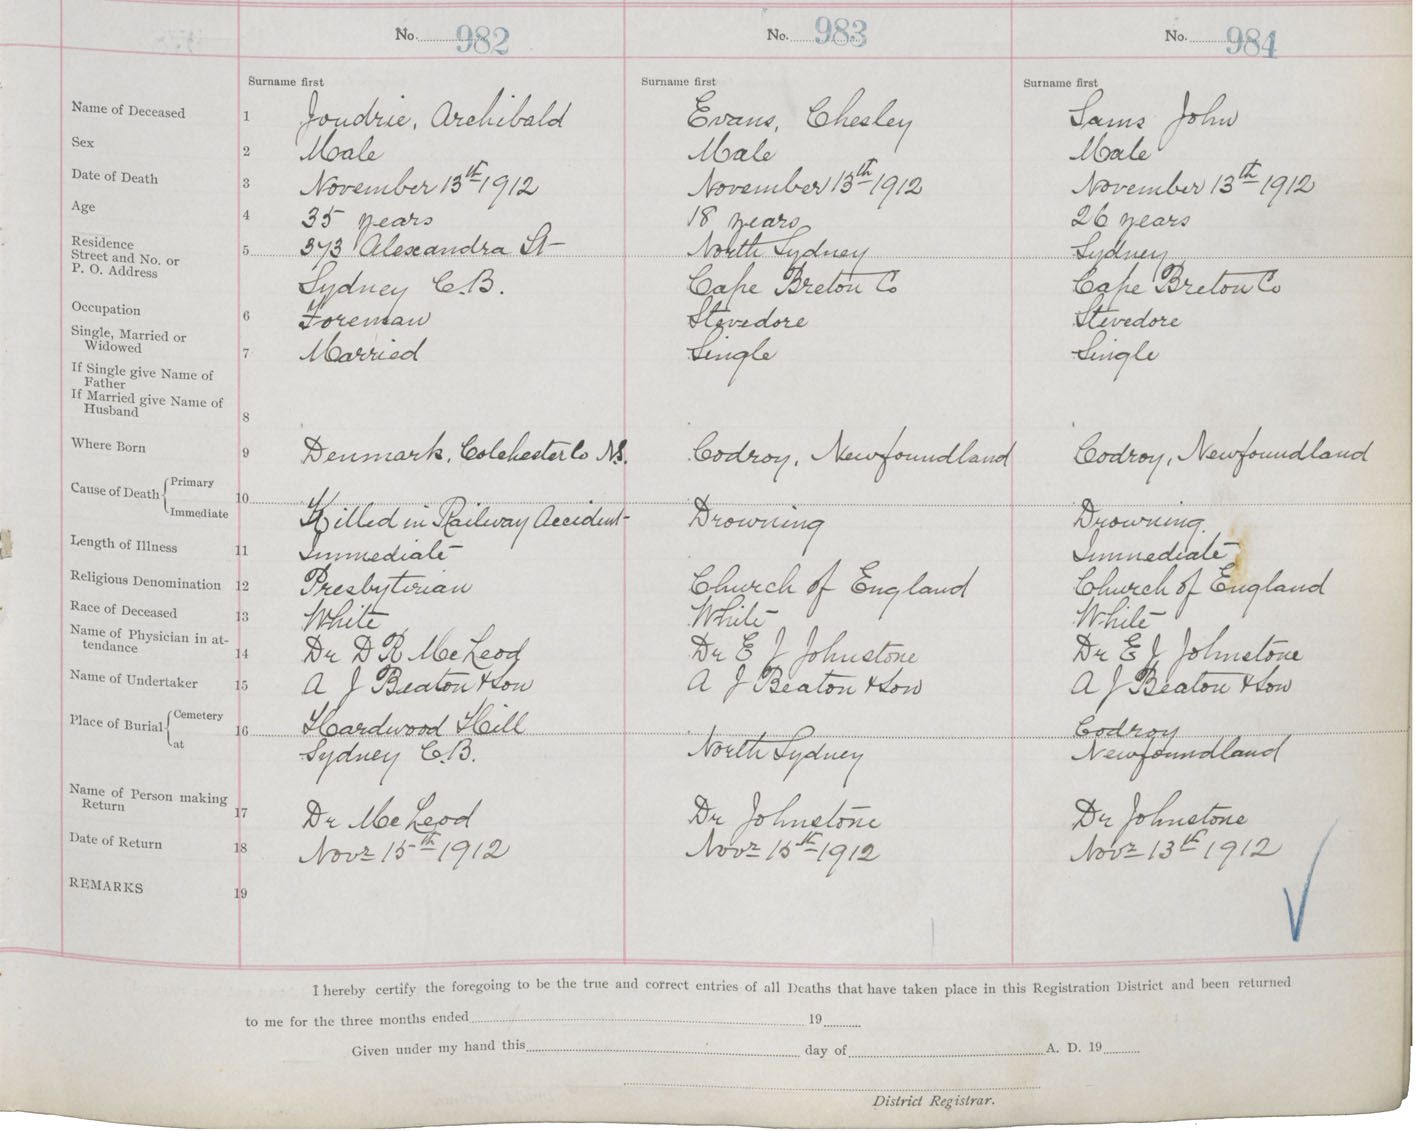 No. 982 No. 983 No. 984
Surname first Surname first Surname first
Name of Deceased 1 Joudrie, Archibald Evans, Chesley Sams John
Sex 2 Male Male Male
Date of Death 3 November 13th 1912 November 13th 1912 November 13th 1912
Age 4 35 years 18 years 26 years
Residence
Street and No. or 5 373 Alexandra St North Sydney Sydney
P. O. Address Sydney C.B. Cape Breton Co Cape Breton Co
Occupation 6 Foreman Stevedore Stevedore
Single, Married or
Widowed 7 Married Single Single
If Single give Name of
Father
If Married give Name of
Husband 8
Where Born 9 Denmark, Colchester Co N.S. Codroy, Newfoundland Codroy, Newfoundland
Cause of Death Primary 10
Immediate Killed in Railway Accident Drowning Drowning
Length of Illness 11 Immediate Immediate
Religious Denomination 12 Presbyterian Church of England Church of England
Race of Deceased 13 White White White
Name of Physician in at-
tendance 14 Dr D R McLeod Dr E J Johnstone Dr E J Johnstone
Name of Undertaker 15 A J Beaton & Son A J Beaton & Son A J Beaton & Son
Place of Burial Cemetery 16 Hardwood Hill Codroy
at Sydney C.B. North Sydney Newfoundland
Name of Person making
Return 17 Dr McLeod Dr Johnstone Dr Johnstone
Date of Return 18 Novr 15th 1912 Novr 15th 1912 Novr 13th 1912
REMARKS 19
I hereby certify the foregoing to be the true and correct entries of all Deaths that have taken place in this Registration District and been returned
to me for the three months ended 19
Given under my hand this day of A. D. 19
District Registrar.